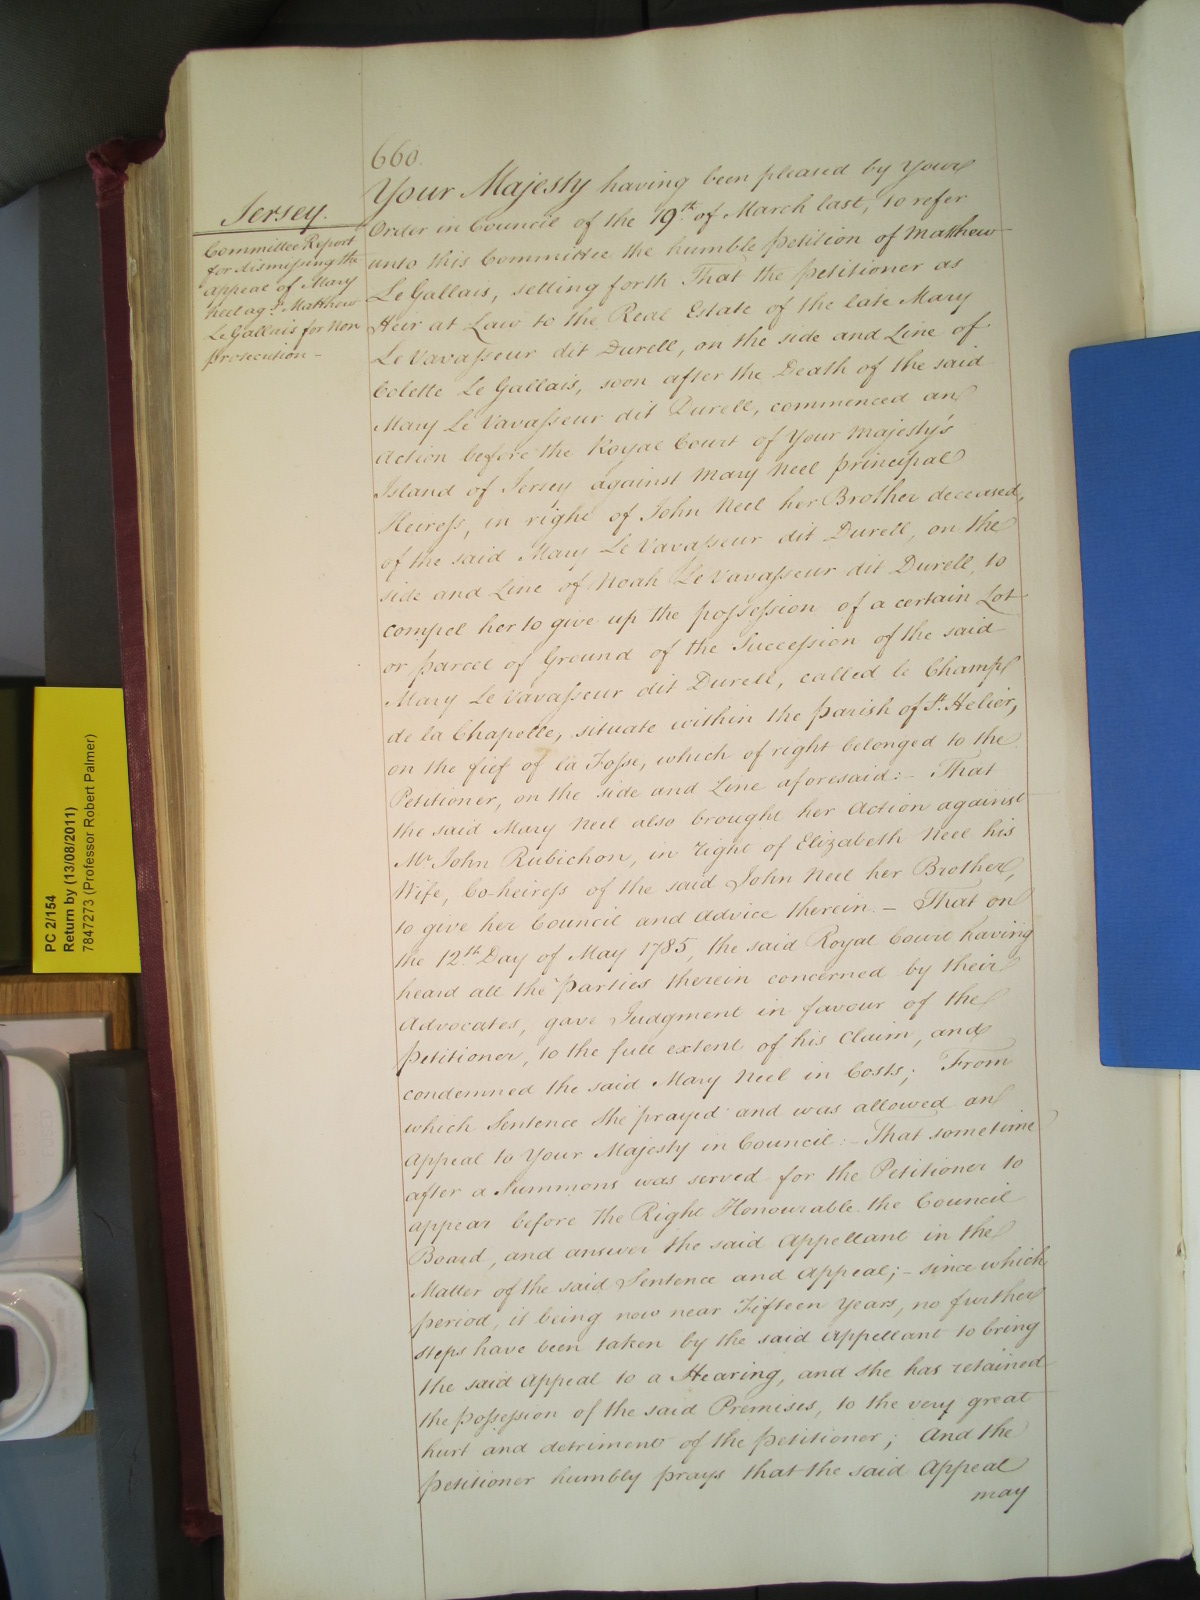 660.
Jersey.
Committee Report
for dismissing the
appeal of Mary
Neel agt. Matthew
Le Gallais for Non
prosecution -
Your Majesty having been pleased by Your
Order in Council of the 19th of March last, to refer
unto this Committee the humble Petition of Mathew
Le Gallais, setting forth That the Petitioner as
Heir at Law to the Real Estate of the late Mary
Le Vavasseur dit Durell, on the side and Line of
Colette Le Gallais, soon after the Death of the said
Mary Le Vavasseur dit Durell, commenced an
Action before the Royal Court of Your Majesty's
Island of Jersey against Mary Neel principal
Heiress, in right of John Neel her Brother deceased,
of the said Mary Le Vavasseur dit Durell, on the
side and Line of Noah Le Vavasseur dit Durell, to
compel her to give up the possession of a certain Lot
or parcel of Ground of the Succession of the said
Mary Le Vavasseur dit Durell, called le Champ
de la Chapelle, situate within the Parish of St. Helier,
on the fief of la Fosse, which of right belonged to the
Petitioner, on the side and Line aforesaid:- That
the said Mary Neel also brought her Action against
Mr John Rubichon, in right of Elizabeth Neel his
Wife, Co-heiress of the said John Neel her Brother,
to give her Council and Advice therein. - That on
the 12th Day of May 1785, the said Royal Court having
heard all the Parties therein concerned by their
Advocates, gave Judgment in favour of the
Petitioner, to the full extent of his Claim, and
condemned the said Mary Neel in Costs; From
which Sentence She prayed and was allowed an
Appeal to Your Majesty in Council:- That sometime
after a Summons was served for the Petitioner to
appear before the Right Honourable the Council
Board, and answer the said Appellant in the
Matter of the said Sentence and Appeal; - since which
period, it being now near Fifteen Years, no further
steps have been taken by the said Appellant to bring
the said Appeal to a Hearing, and she has retained
the possession of the said Premises, to the very great
hurt and detriment of the Petitioner; And the
Petitioner humbly prays that the said Appeal
may
PC 2/154
Return by (13/08/2011)
7847273 (Professor Robert Palmer)